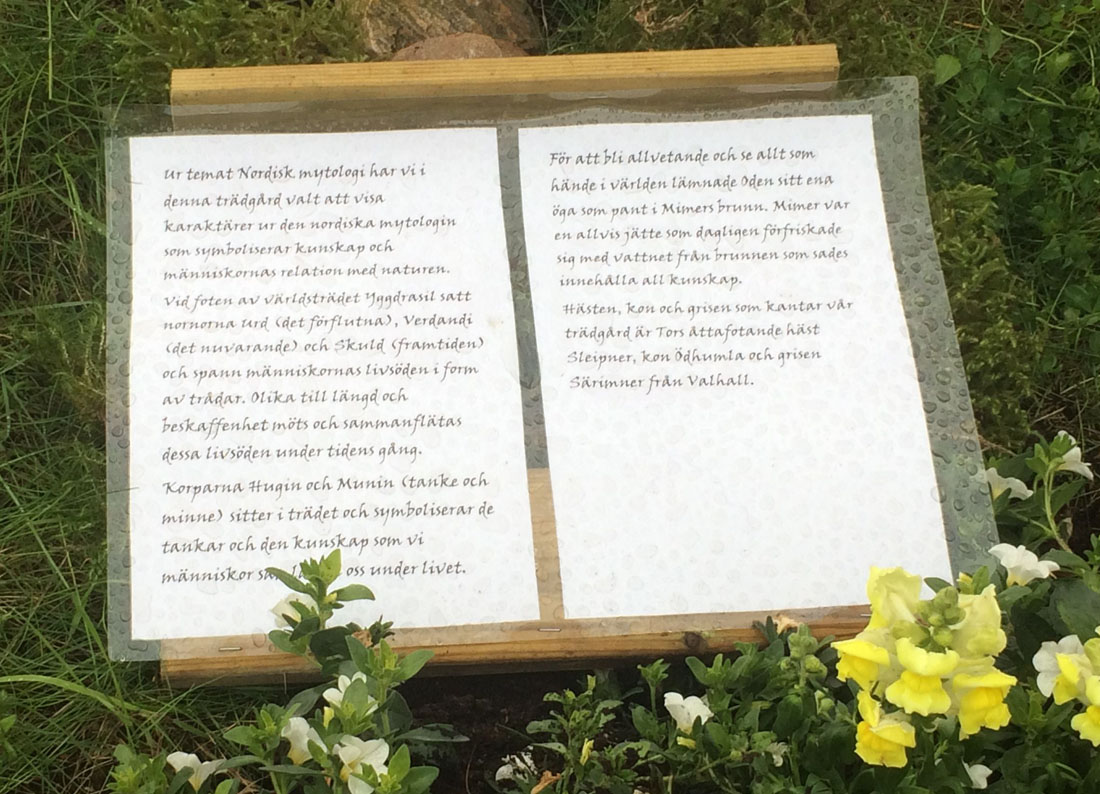 Ur temat Nordisk mytologi har vi i
denna trädgård valt att visa
karaktärer ur den nordiska mytologin
som symboliserar kunskap och
människornas relation med naturen.
Vid foten av världsträdet Yggdrasil satt
nornorna Urd (det förflutna), Verdandi
(det nuvarande) och Skuld (framtiden)
och spann människornas livsöden i form
av trådar. Olika till längd och
beskaffenhet möts och sammanflätas
dessa livsöden under tidens gång.
Korparna Hugin och Munin (tanke och
minne) sitter i trädet och symboliserar de
tankar och den kunskap som vi
människor oss under livet.
För att bli allvetande och se allt som
hände i världen lämnade Oden sitt ena
öga som pant i Mimers brunn. Mimer var
en allvis jätte som dagligen förfriskade
sig med vattnet från brunnen som sades
innehålla all kunskap.
Hästen, kon och grisen som kantar vår
trädgård är Tors åttafotande häst
Sleipner, kon Ödhumla och grisen
Särimner från Valhall.